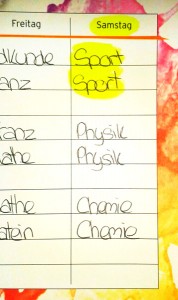 Freitag Samstag
dkunde Sport
anz Sport
anz Physik
athe Physik
athe Chemie
atein Chemie